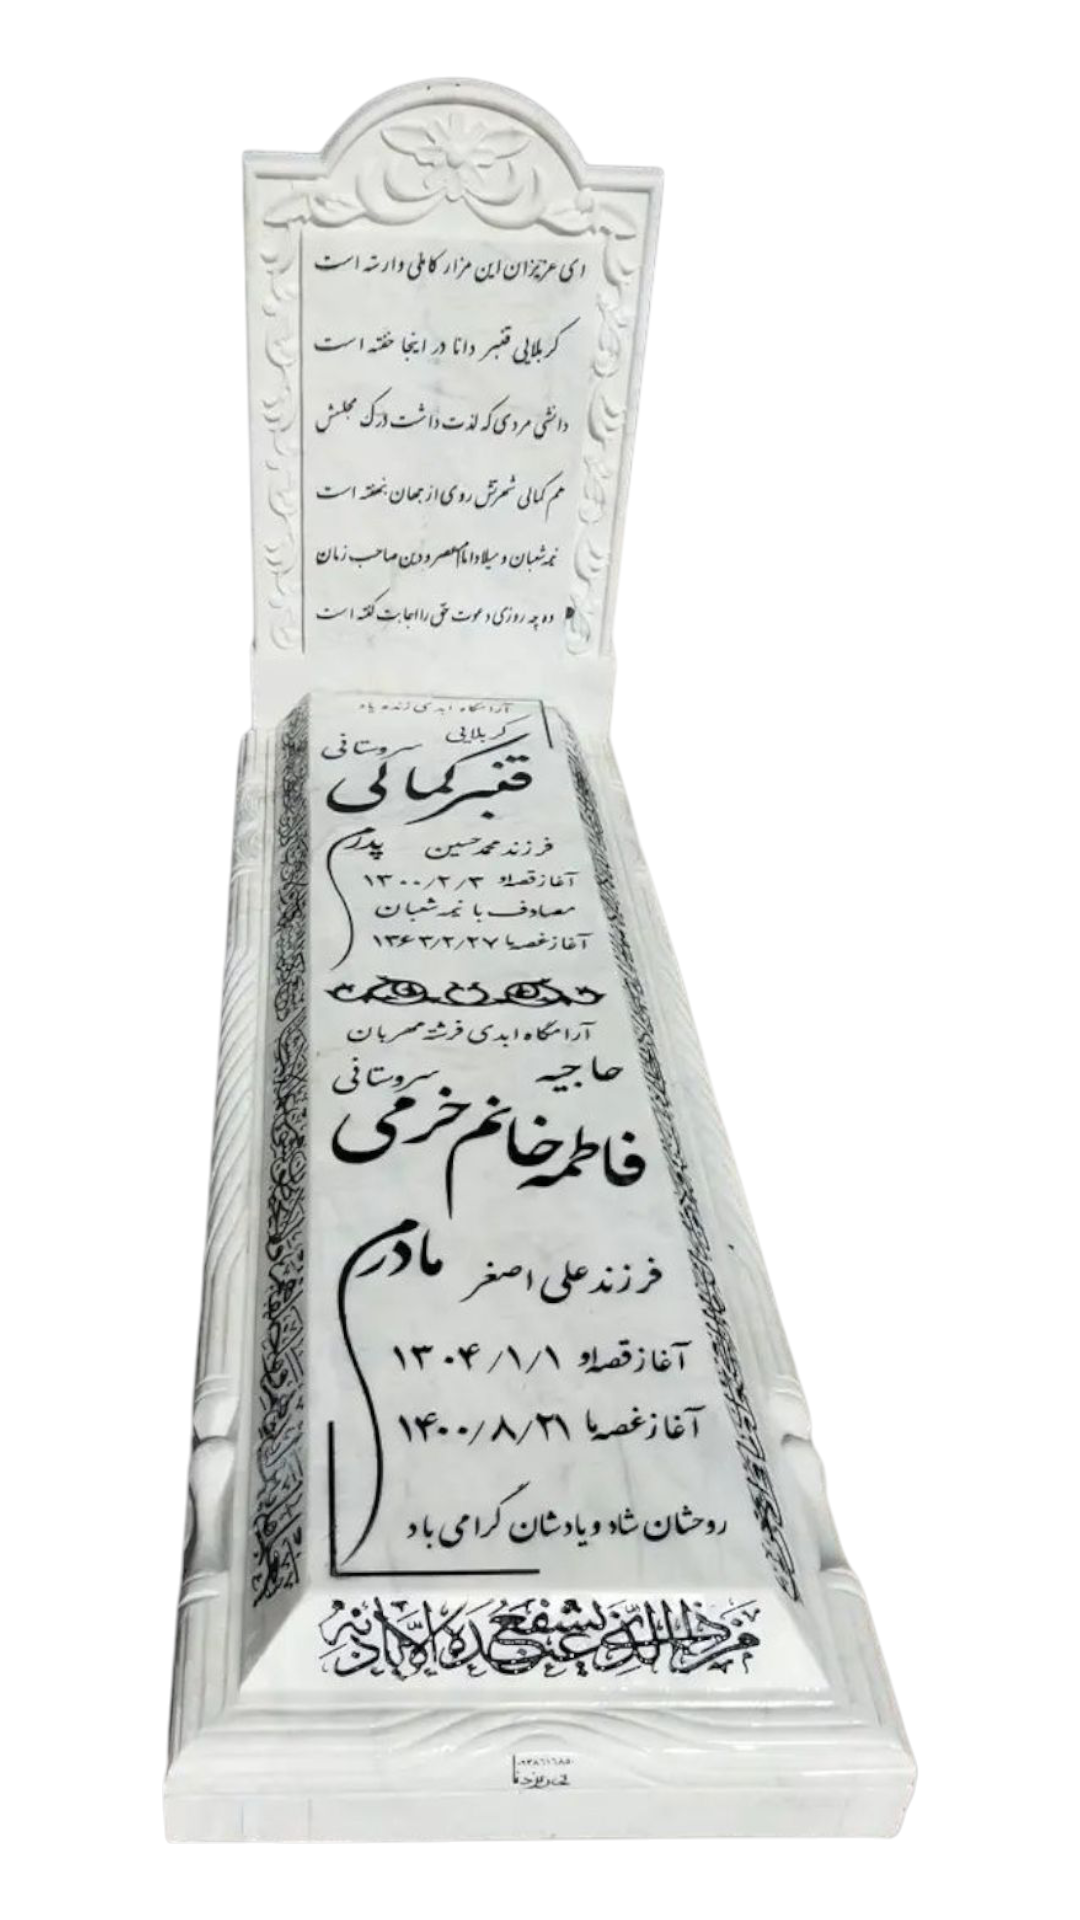 ای عزیزان این مزار کاملی وارسته است
کربلایی قنبر دانا در اینجا خفته است
دانشی مردی که لذت داشت درک مجلسش
هم کمالی شهرتش روی از جهان بنهفته است
نیمه شعبان و میلاد امام عصر و دین صاحب زمان
ده چه روزی دعوت حق را اجابت گفته است
آرامگاه ابدی زنده یاد
کربلایی
قنبر کمالی سروستانی
فرزند محمد حسین پدرم
آغاز قصه او ۱۳۰۰/۲/۳
مصادف با نیمه شعبان
آغاز غصه ما ۱۳۶۳/۲/۲۷
آرامگاه ابدی فرشته مهربان
حاجیه
فاطمه خانم خرمی سروستانی
فرزند علی اصغر مادرم
آغاز قصه او ۱۳۰۴/۱/۱
آغاز غصه ما ۱۴۰۰/۸/۲۱
روحشان شاد و یادشان گرامی باد
من ذا الذی یشفع عنده الا باذنه